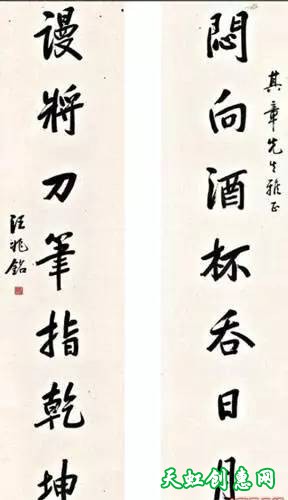 其章先生雅正
悶向酒杯吞日月
谩將刀筆指乾坤
汪兆銘
天虹创意网